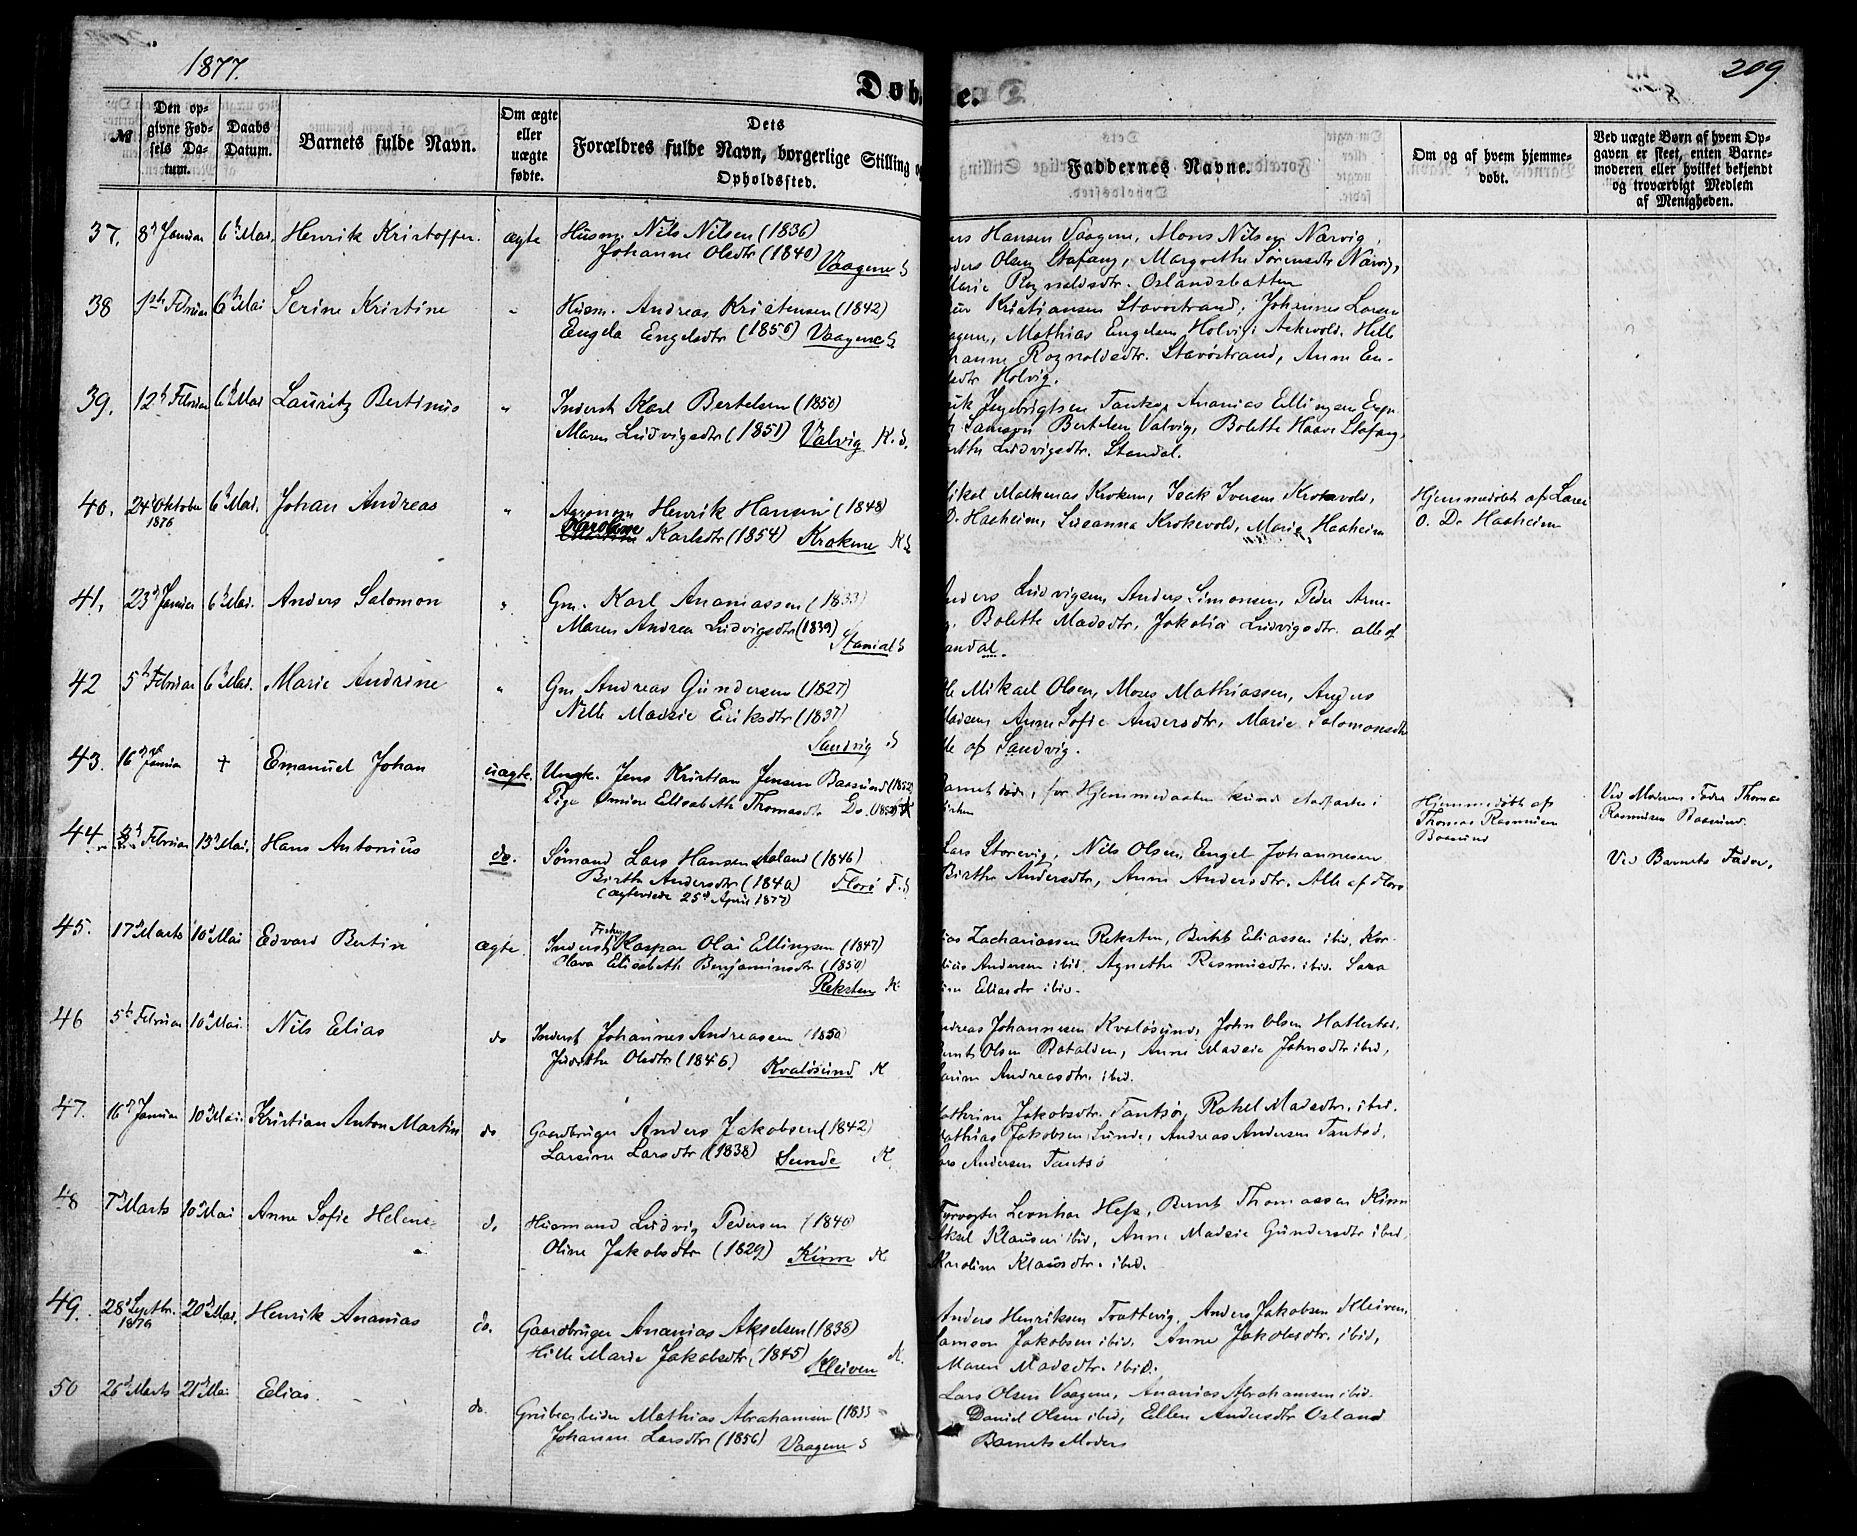 1877.
Døbte.
209.
№
Den opgivne Fødsels Datum.
Daabs Datum.
Barnets fulde Navn.
Om ægte eller uægte fødte.
Dets Forældres fulde Navn, borgerlige Stilling og Opholdssted.
Faddernes Navne.
Om og af hvem hjemmedøbt.
Ved uægte Børn af hvem Opgaven er skeet, enten Barnemoderen eller hvilket bekjendt og troværdigt Medlem af Menigheden.
37. 8d Januar 6d Mai. Henrik Kristoffer. ægte Husm. Nils Nilsen (1836)
Johanne Olsdtr (1840) Vaagene S
Hansen Vaagene, Moses Nilsen Narvig,
Olsen Stafang, Margrethe Sørensdtr Narvig,
Marie Rognaldsdtr. Oslandsbotten
38 Februar 6d Mai Serine Kristine " Husm. Andreas Kristensen (1842)
Engela Engelsdtr (1856) Vaagene S.
Kristiansen Stavøstrand, Johannes Larsen
Vaagene, Mathias Engelsen Holvig, Askvold. Hille
Rognaldsdtr. Stavøstrand, Anne En-
Holvig.
39. 12d Februar 6d Mai Lauritz Bertinus " Inderst Karl Bertelsen (1850)
Maren Ludvigsdtr (1851) Valvig K.S.
Ingebrigtsen Tansø, Ananias Ellingsen
Samson Bertelsen Valvig, Bolette Haave Stafang,
Ludvigsdtr. Standal.
40. 24d Oktober 1876 6d Mai. Johan Andreas " Agronom Henrik Hansen (1848)
Karoline Karlsdtr (1854) Krokene K S
Mikal Mathenas Kroken, Isak Iversen Krokevold,
O. D. Haaheim, Susanna Krokevold, Marie Haaheim
Hjemmedøbt af Larer
O. D. Haaheim
41. 23d Januar 6d Mai. Anders Salomon " Gm. Karl Ananiassen (1833)
Maren Andrea Ludvigsdtr (1839) Standal S
Anders Ludvigsen, Anders Simonsen, Peder Arne-
Bolette Madsdtr, Jakobia Ludvigsdtr. alle af
Standal.
42 5d Februar 6d Mai. Marie Andrine " Gm Andreas Gundersen (1827)
Nille Madsie Eriksdtr (1837)
Sandvig S
Mikael Olsen, Moses Mathiassen, Anders
Madsen, Anne Sofie Andersdtr, Marie Salomonsdtr
alle af Sandvig.
43. 16d Januar + Emanuel Johan uægte. Ungk. Jens Kristian Jensen Baasund (1852)
Pige Ovine Elisabeth Thomasdtr Do. (1852) K
Barnet døde, før Hjemmedaaben kunde stadfæstes i
Kirken
Hjemmedøbt af
Thomas Rasmusen
Baasund
Ved Moderens Fader Thomas
Rasmusen Baasund.
44. Februar 13d Mai. Hans Antonius do. Sømand Lars Hansen Aaland (1846)
Birthe Andersdtr (1840) Florø F.S
(ægteviede 25d April 1877)
Lars Storevig, Nils Olsen, Engel Johannesen
Birthe Andersdtr, Anne Andersdtr. Alle af Florø
Ved Barnets Fader.
45. 17d Marts 10d Mai Edvard Bertin ægte. Inderst Fisker Kaspar Olai Ellingsen (1847)
Olava Elisabeth Benjaminsdtr (1850)
Reksten K
Zachariassen Reksten, Berthb Eliassen ibid. Kor-
Andersen ibid, Agnethe Rasmusdtr. ibid. Sara
Eliasdtr ibid.
46 5d Februar 10d Mai. Nils Elias do Inderst Johannes Andreassen (1850)
Judithe Olsdtr (1846) Kvaløsund K
Andreas Johannesen Kvaløsund, John Olsen Hatlestad,
Bernt Olsen Batalden, Anne Madsie Johnsdtr ibid,
Andreasdtr. ibid.
47. 16d Januar 10d Mai. Kristian Anton Martin do Gaardbruger Anders Jakobsen (1842)
Larsine Larsdtr (1838) Sunde K.
Kathrine Jakobsdtr. Tansø, Rakel Madsdtr. ibid.
Mathias Jakobsen Sunde, Andreas Andersen Tansø,
Lars Andersen Tansø
48 7d Marts 10d Mai Anne Sofie Helene do Husmand Ludvig Pedersen (1840)
Oline Jakobsdtr (1829) Kinn K
Fyrvogter Leonhar Hess, Bernt Thomassen Kinn
Aksel Klausen ibid, Anne Madsie Gundersdtr ibid,
Karoline Klausdtr. ibid.
49. 28d Septbr. 1876 20d Mai. Henrik Ananias do. Gaardbruger Ananias Akselsen (1838)
Hille Marie Jakobsdtr (1845) Kleiven K.
Anders Henriksen Trættevig, Anders Jakobsen Kleiven,
Samson Jakobsen ibid, Anne Jakobsdtr. ibid,
Maren Madsdtr. ibid.
50 26d Marts 21d Mai Elias. do. Grubearbeider Mathias Abrahamsen (1833
Johanne Larsdtr (1856) Vaagene S
Lars Olsen Vaagene, Ananias Abrahamsen ibid.
Daniel Olsen ibid, Ellen Andersdtr Osland
Barnets Moder